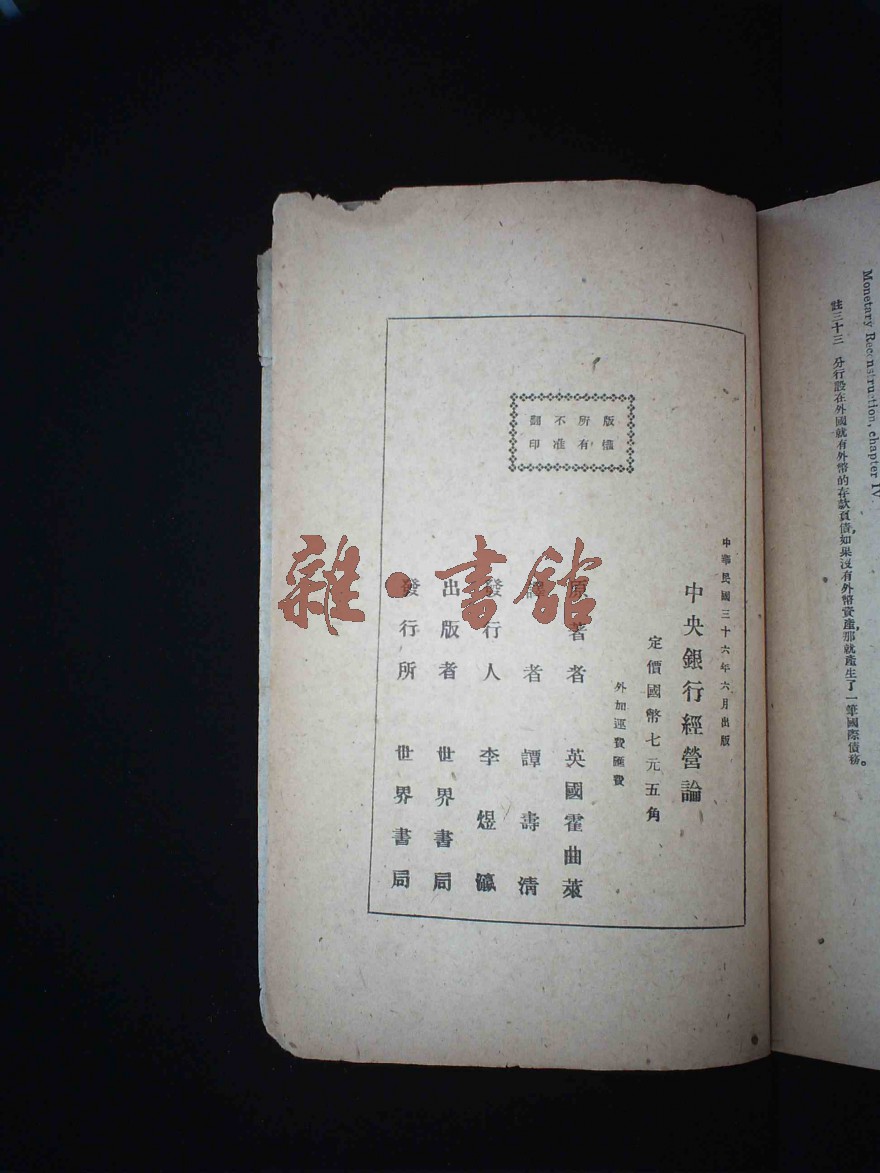 Monetary Reconstruction, chapter IV
註三十三　分行設在外國就有外幣的存款負債，如果沒有外幣資產，那就產生了一筆國際債務。
中華民國三十六年六月出版
中央銀行經營論
定價國幣七元五角
外加運費匯費
版權
所有
不准
翻印
原著者　英國霍曲萊
譯者　譚壽清
發行人　李煜瀛
出版者　世界書局
發行所　世界書局
雜·書館